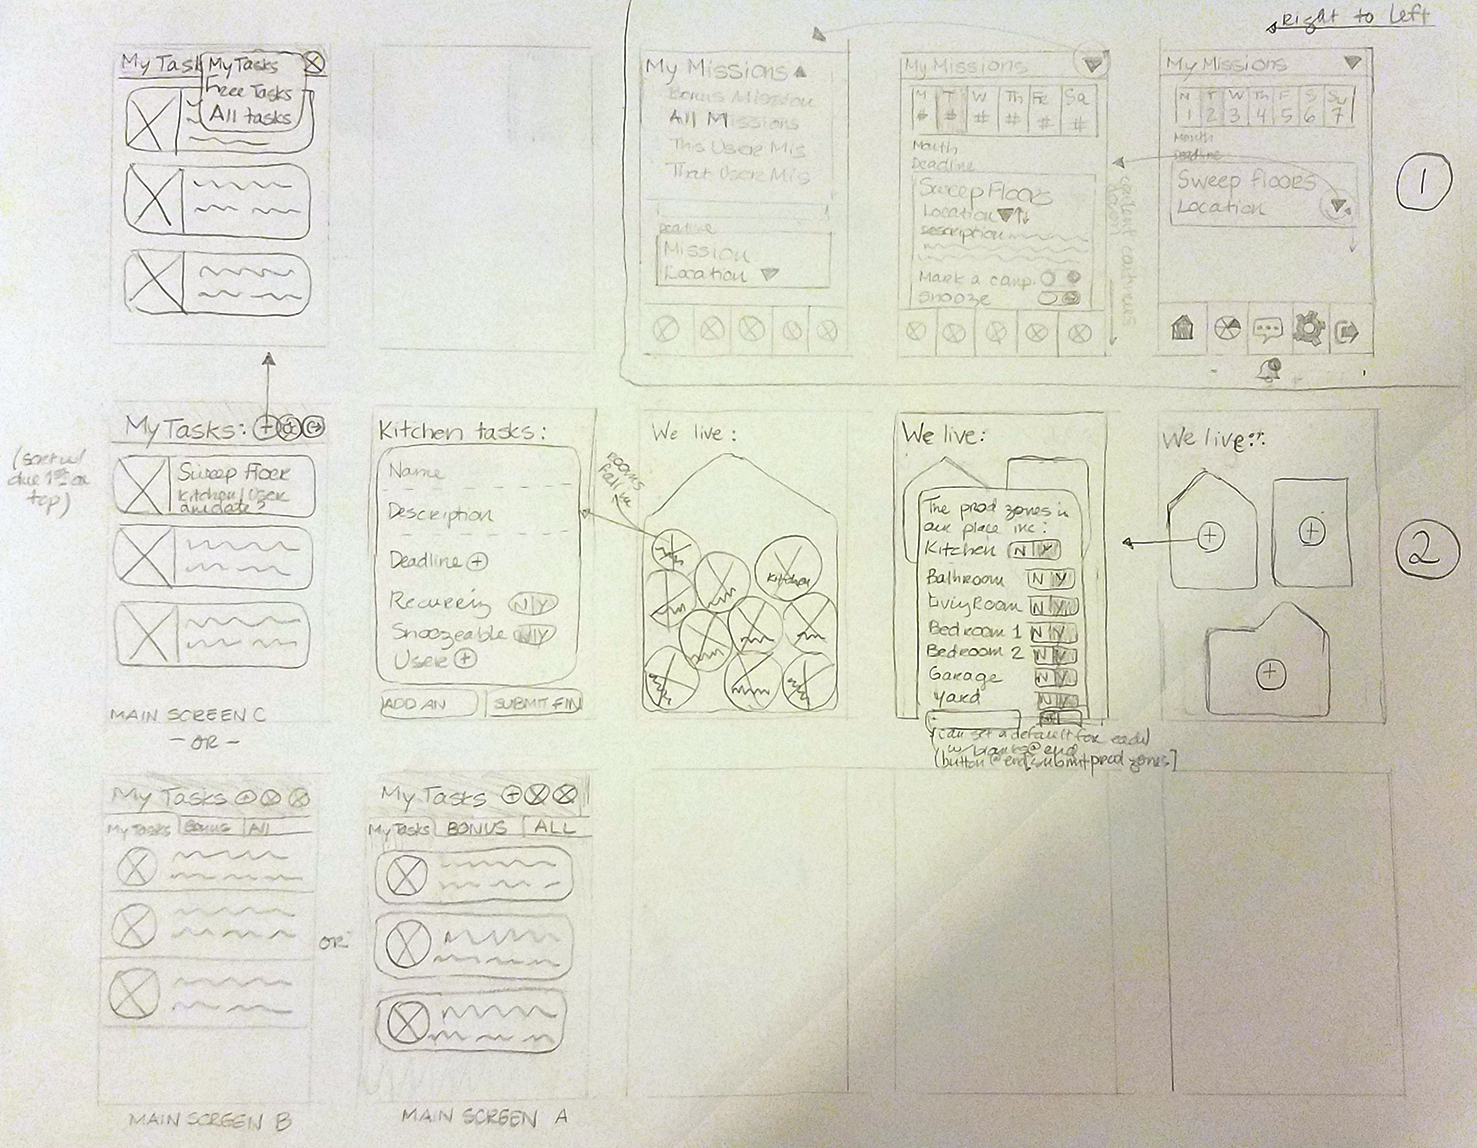 Right to Left
My Tasks
My Tasks
Free Tasks
All tasks
My Missions
Bonus Mission
All Missions
This User Mis
That User Mis
Deadline
Mission
Location
My Missions
M T W Th Fr Sa
# # # # # #
Month
Deadline
Sweep Floors
Location
Description
Mark a comp.
Snooze
content continues
down
My Missions
M T W Th F S Su
1 2 3 4 5 6 7
Month
Deadline
Sweep floors
Location
1
My Tasks:
(sort w/
due 1st on
top)
Sweep floor
Kitchen / User
MAIN SCREEN C
- OR -
Kitchen tasks:
Name
Description
Deadline +
Recurring N/Y
Snoozeable N/Y
User +
ADD AN
SUBMIT FIN
rooms
fall in
We live:
Kitchen
We live:
The prod zones in
our place inc:
Kitchen N Y
Bathroom N Y
Living Room N Y
Bedroom 1 N Y
Bedroom 2 N Y
Garage N Y
Yard N Y
(can set a default for each)
w/ blanks @ end
(button @ end [submit prod zones]
We live:
+
+
+
2
My Tasks
My Tasks Bonus All
MAIN SCREEN B
OR
My Tasks
My Tasks BONUS ALL
MAIN SCREEN A